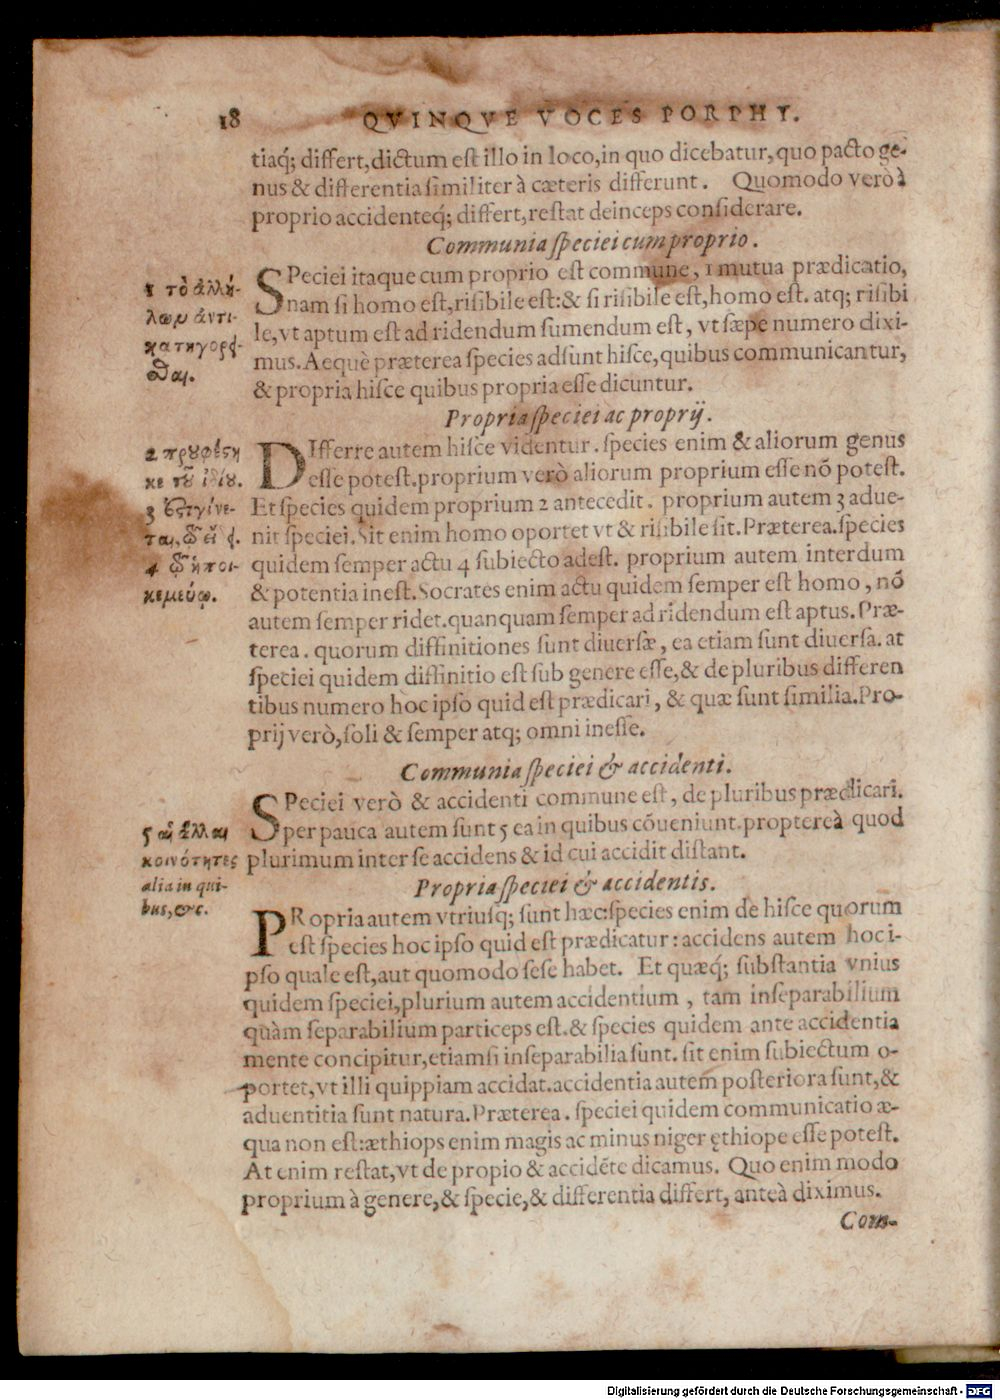 18 QVINQVE VOCES PORPHY.
tiaq́; differt, dictum est illo in loco, in quo dicebatur, quo pacto ge-
nus & differentia similiter à cæteris differunt. Quomodo verò à
proprio accidenteq́; differt, restat deinceps considerare.
Communia speciei cum proprio.
SPeciei itaque cum proprio est commune, 1 mutua prædicatio,
nam si homo est, risibile est: & si risibile est, homo est. atq; risibi
le, vt aptum est ad ridendum sumendum est, vt sæpe numero dixi-
mus. Aequè præterea species adsunt hisce, quibus communicantur,
& propria hisce quibus propria esse dicuntur.
1 τὸ ἀλλή-
λων ἀντι-
κατηγορεῖ-
σθαι.
Propria speciei ac proprij.
DIfferre autem hisce videntur. species enim & aliorum genus
esse potest. proprium verò aliorum proprium esse nõ potest.
Et species quidem proprium 2 antecedit. proprium autem 3 adue-
nit speciei. Sit enim homo oportet vt & risibile sit. Præterea. species
quidem semper actu 4 subiecto adest. proprium autem interdum
& potentia inest. Socrates enim actu quidem semper est homo, nõ
autem semper ridet. quanquam semper ad ridendum est aptus. Præ-
terea. quorum diffinitiones sunt diuersæ, ea etiam sunt diuersa. at
speciei quidem diffinitio est sub genere esse, & de pluribus differen
tibus numero hoc ipso quid est prædicari, & quæ sunt similia. Pro-
prij verò, soli & semper atq; omni inesse.
2 προυφέστη
κε τοῦ ἰδίου.
3 ἐπιγίνε-
ται τῷ εἴδ.
4 τῷ ὑποκει-
κεμένῳ.
Communia speciei & accidenti.
SPeciei verò & accidenti commune est, de pluribus prædicari.
perpauca autem sunt 5 ea in quibus cõueniunt. propterea quod
plurimum inter se accidens & id cui accidit distant.
5 αἱ ἄλλαι
κοινότητες
alia in qui-
bus, &c.
Propria speciei & accidentis.
PRopria autem vtriusq; sunt hæc: species enim de hisce quorum
est species hoc ipso quid est prædicatur: accidens autem hoc i-
pso quale est, aut quomodo sese habet. Et quæq́; substantia vnius
quidem speciei, plurium autem accidentium, tam inseparabilium
quàm separabilium particeps est. & species quidem ante accidentia
mente concipitur, etiamsi inseparabilia sunt. sit enim subiectum o-
portet, vt illi quippiam accidat. accidentia autem posteriora sunt, &
aduentitia sunt natura. Præterea. speciei quidem communicatio æ-
qua non est: æthiops enim magis ac minus niger ęthiope esse potest.
At enim restat, vt de propio & accidẽte dicamus. Quo enim modo
proprium à genere, & specie, & differentia differt, anteà diximus.
Com-
Digitalisierung gefördert durch die Deutsche Forschungsgemeinschaft - DFG